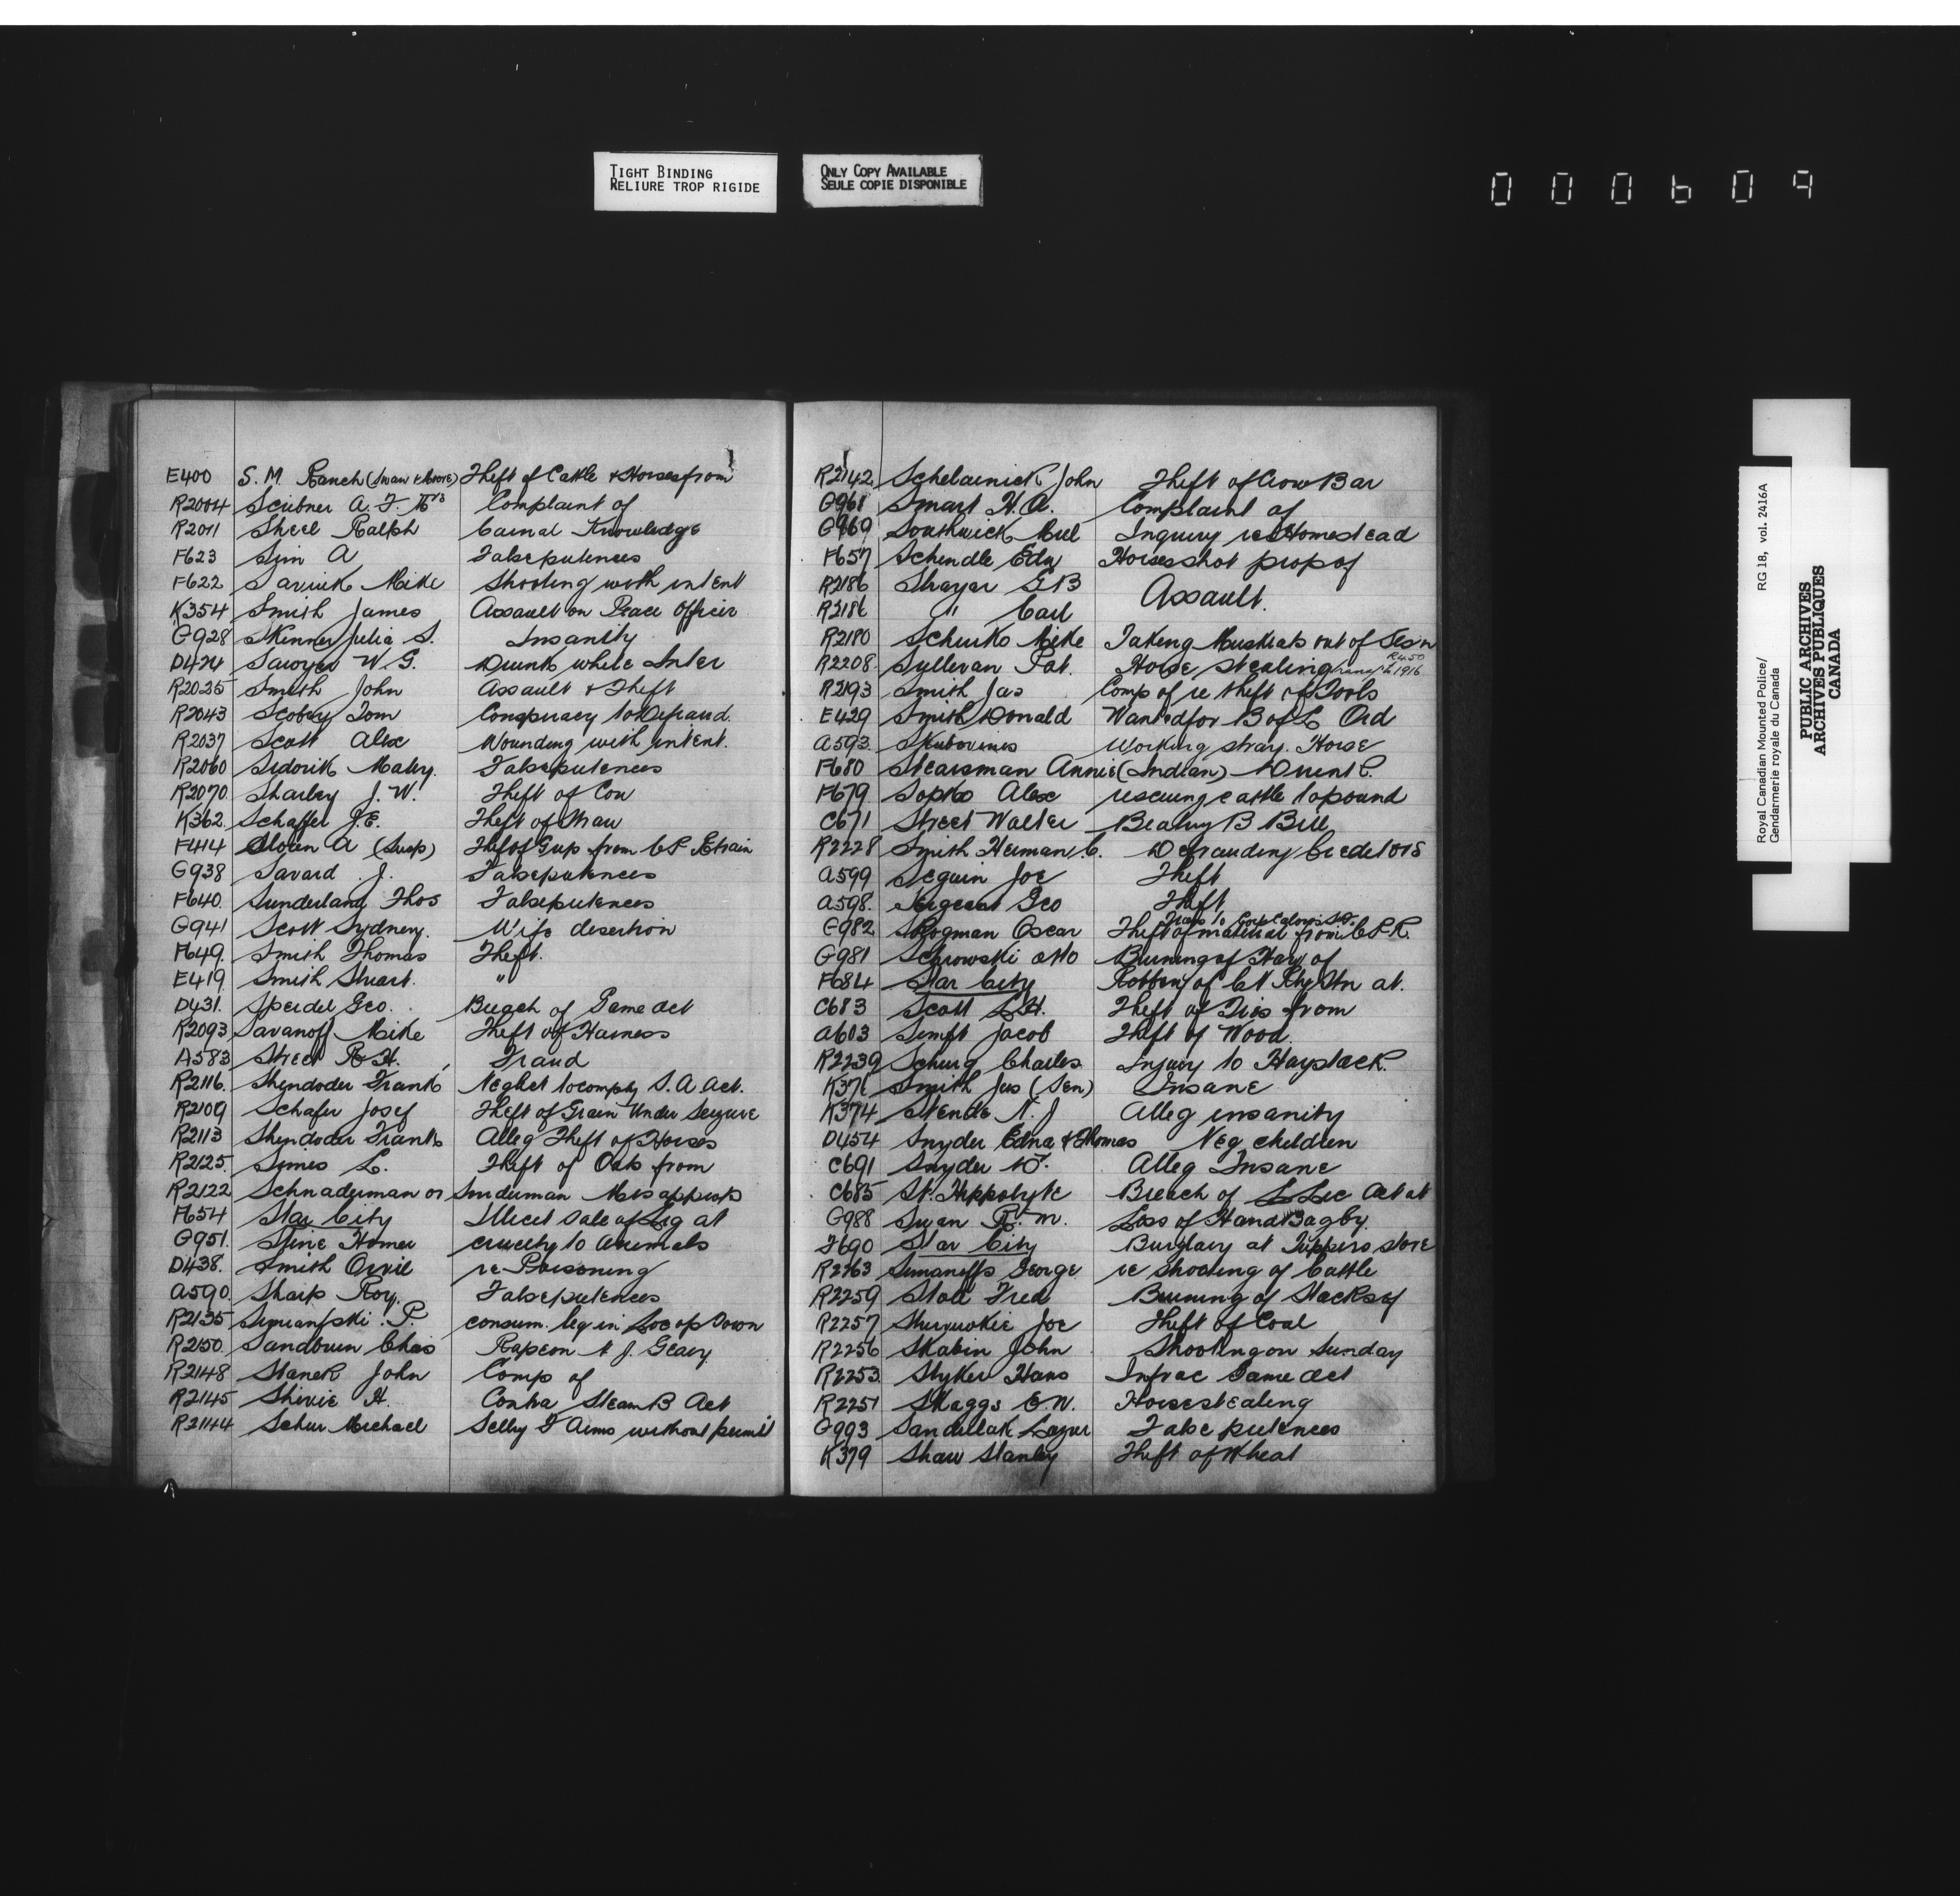 TIGHT BINDING
RELIURE TROP RIGIDE
ONLY COPY AVAILABLE
SEULE COPIE DISPONIBLE
000609
E400 S. M. Ranch (Swan & Moore) Theft of Cattle & Horses from
R2004 Scribner A. F. Mrs Complaint of
R2011 Sheel Ralph Carnal Knowledge
F623 Sim A False pretences
F622 Mike Shooting with intent
K354 Smith James Assault on Peace Officer
G928 Skinner Julia S. Insanity
D424 Sawyer W G. Drunk while Inter
R2025 Smith John Assault & Theft
R2043 Scobey Tom Conspiracy to Defraud.
R2037 Scott Alex Wounding with intent.
R2060 Sidorik False pretences
R2070 Sharley J. W. Theft of Cow
K362 Schaffer J. E. Theft of Straw
F414 Sloien A (Susp) Theft of from C P R train
G938 Savard J. False pretences
F640. Sunderland Thos False pretences
G941 Scott Sydney. Wife desertion
F649. Smith Thomas Theft.
E419 Smith Stuart. "
D431. Speidel Geo. Breach of Game Act
R2093 Savanoff Mike Theft of Harness
A583 Street R H. Fraud
R2116. Shyndoder Frank Neglect to comply S. A Act.
R2109 Schafer Josef Theft of Grain Under Seizure
R2113 Shendoder Frank Alleg Theft of Horses
R2125. Simes L. Theft of Oats from
R2122 Schnaderman or Sniderman Misapprop
F654 Star City Illicit Sale of Liq at
G951. Stine Homer cruelty to animals
D438. Smith Orvil re Poisoning
A590. Sharp Roy. False pretences
R2135 P. consum. liq in Loc op Town
R2150. Sandburn Chas Rape on J. Geary
R2148 Stanek John Comp of
R2145 Shivie H. Contra Steam B Act
R2144 Schur Michael Sellg F Arms without permit
R2142 Schelainick John Theft of Crow Bar
G961 Smart H. A. Complaint of
G969 Southwick Mel Inquiry re Homestead
F657 Schendle Edw Horses shot prop of
R2186 Strayar G B Assault.
R2186 " Carl
R2180 Schurko Mike Taking Muskrats out of Seas'n
R2208. Sullivan Pat. Horse stealing R450 1916
R2193 Smith Jas Comp of re theft of Tools
E429 Smith Donald Wanted for B of L Ord
A593. Skubovines Working stray. Horse
F680 Stearsman Annie (Indian) Drunk.
F679 Sopko Alex rescuing cattle to pound
C671 Street Walter Beatng B Bill
R2228 Smith Herman C. Defrauding Creditors
A599 Seguin Joe Theft
A598. Sergeant Geo Theft
G982 Skogman Oscar Theft of material from C P R.
G981 Scbrowski Otto Burning of Hay of
F684 Star City Robbery of C N Rly Stn at.
C683 Scott L H. Theft of Ties from
A603 Simft Jacob Theft of Wood.
R2239 Schurg Charles Injury to Haystack.
K371 Smith Jas (Sen) Insane
K374 Stende N. J Alleg insanity
D454 Snyder Edna & Thomas Neg children
C691 Snyder W. Alleg Insane
C685 St. Hippolyte Breach of L Lic Act at
G988 Swan R. M. Loss of Hand Bag by.
F690 Star City Burglary at Tuppers store
R2263 Simaneffs George re shooting of Cattle
R2259 Stoll Fred Burning of Stacks of
R2257 Joe Theft of Coal
R2256 Skabin John Shooting on Sunday
R2253. Stryker Hans Infrac Game Act
R2251 Skaggs E. W. Horsestealing
G993 Sandillak Lazur False pretences
K379 Shaw Stanley Theft of Wheat
Royal Canadian Mounted Police/ RG 18, vol. 2416A
Gendarmerie royale du Canada
PUBLIC ARCHIVES
ARCHIVES PUBLIQUES
CANADA